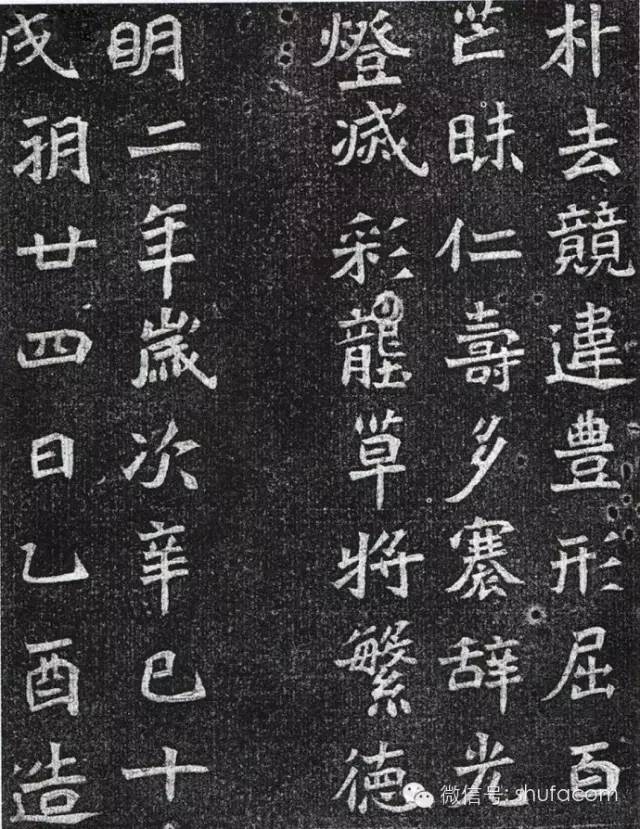 朴去競違豊形屈百
芒昧仁壽多褰辞光
燈滅彩壟草將繁德
明二年歲次辛巳十
戌朔廿四日乙酉造
微信号: shufacom